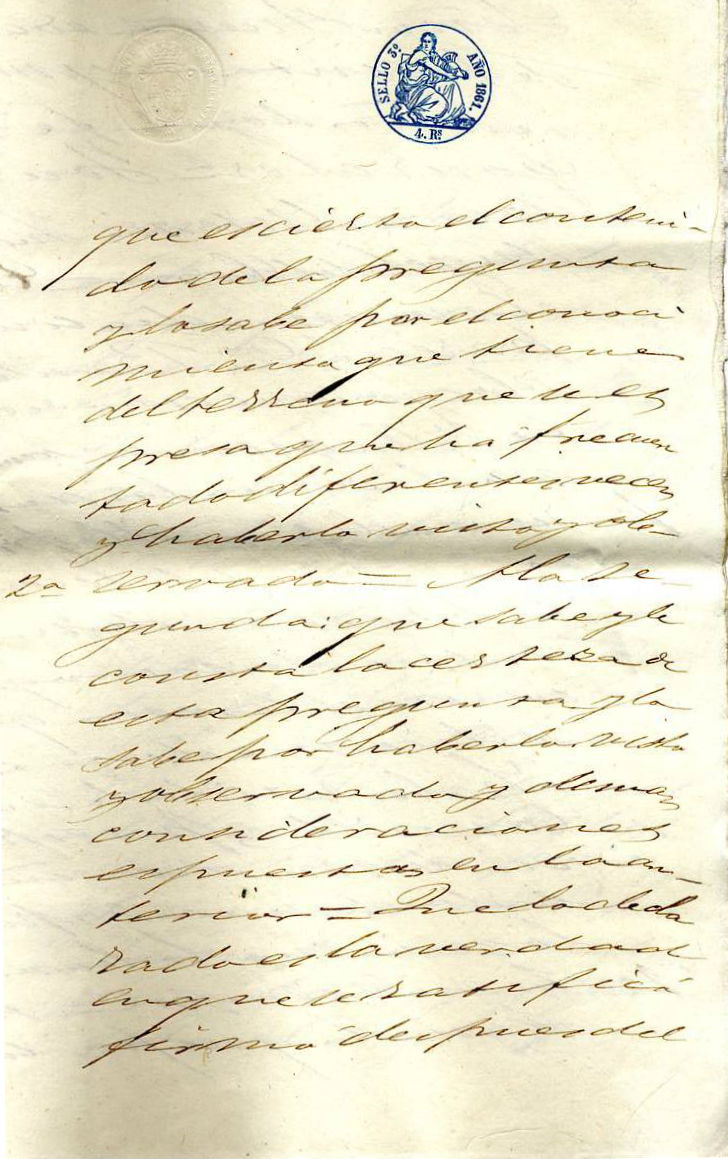 SELLO 3º AÑO 1861.
4. Rs.
que es cierto el conteni-
do de la pregunta
y lo sabe por el conoci
miento que tiene
del terreno que se es
presa que ha frecuen
tado diferentes veces
y haberlo visto y ob-
2a servado = A la se-
gunda: que sabe y le
consta la certeza de
esta pregunta y lo
sabe por haberlo visto
y observado y demas
consideraciones
espuestas en la an-
terior = Que lo decla
rado es la verdad
en que se ratificó
firmó despues del